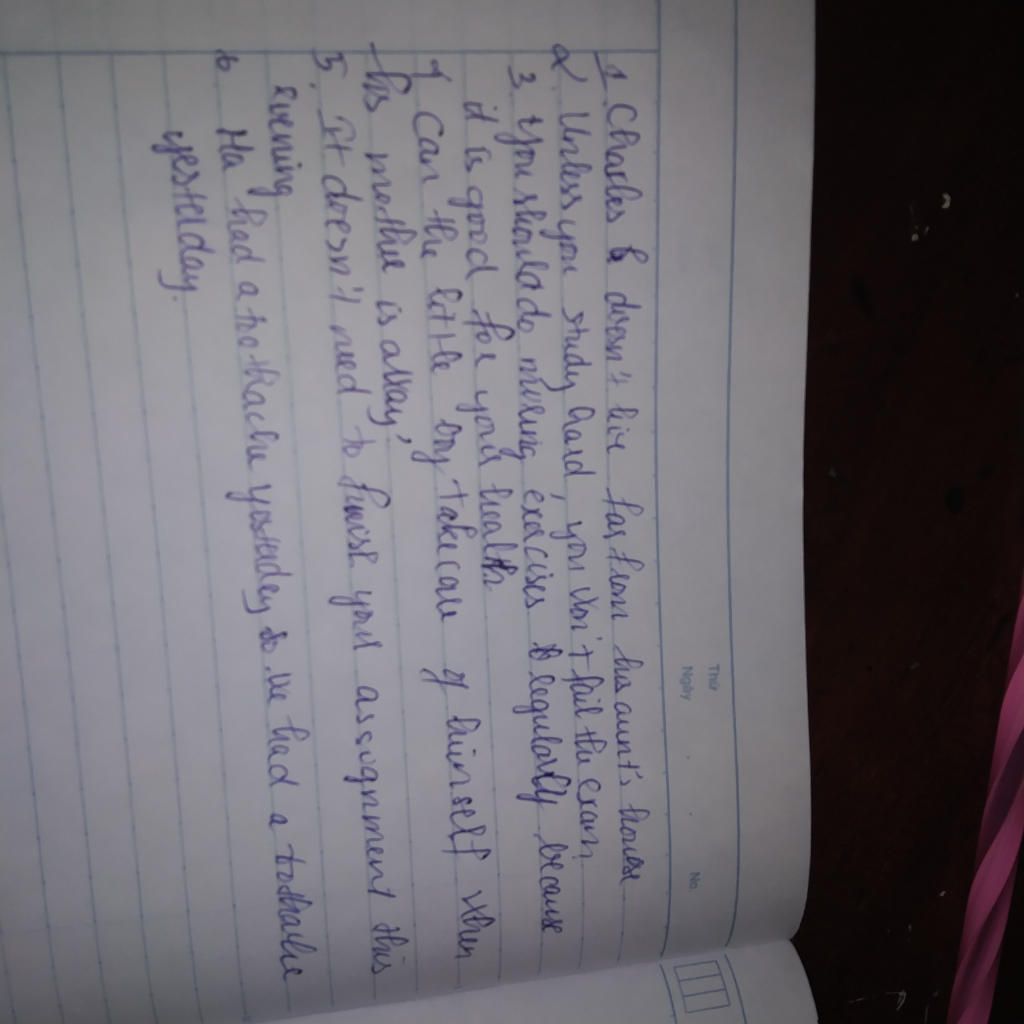 Thứ
Ngày . . No.
1 Charles doesn't live far from his aunt's house
2 Unless you study hard, you won't fail the exam
3 You should do morning exercises regularly because
it is good for your health
4 Can the little boy take care of himself when
his mother is away,
5. It doesn't need to finish your assignment this
evening
6 Ha had a toothache yesterday so he had a toothache
yesterday.